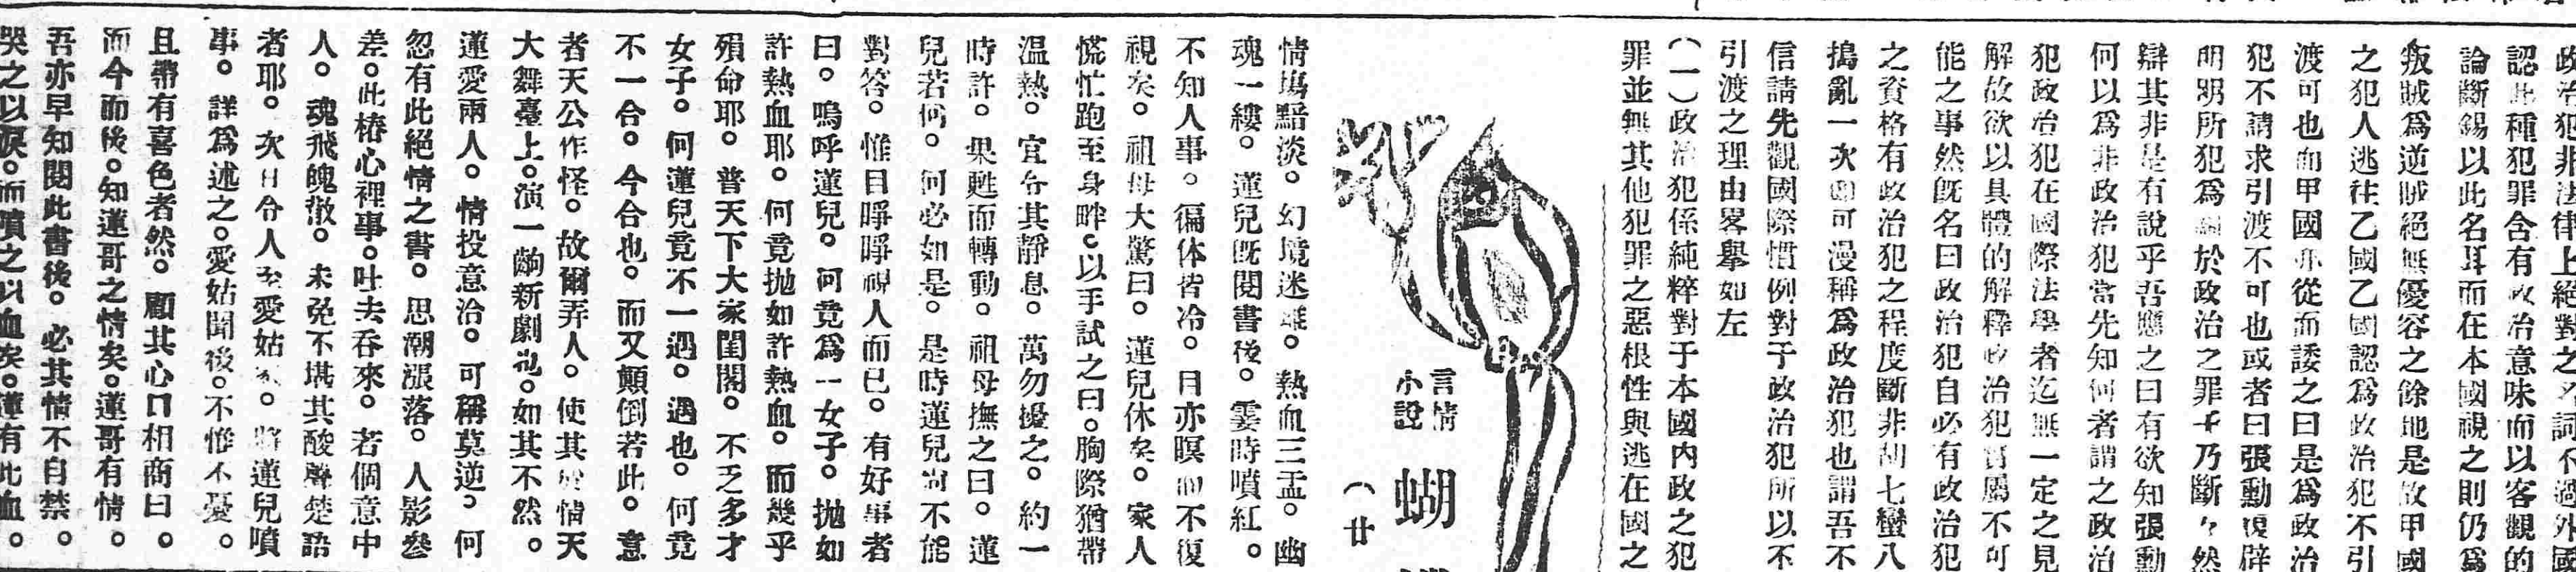 政治犯非法律上絕對之名詞不過外國
認此種犯罪含有政治意味而以客觀的
論斷錫以此名耳而在本國視之則仍爲
叛賊爲逆賊絕無優容之餘地是故甲國
之犯人逃往乙國乙國認爲政治犯不引
渡可也而甲國亦從而諉之曰是爲政治
犯不請求引渡不可也或者曰張勳復辟
明明所犯爲關於政治之罪子乃斷斷然
辯其非是有說乎吾應之曰有欲知張勳
何以爲非政治犯當先知何者謂之政治
犯政治犯在國際法學者迄無一定之見
解故欲以具體的解釋政治犯實屬不可
能之事然旣名曰政治犯自必有政治犯
之資格有政治犯之程度斷非胡七蠻八
搗亂一次即可漫稱爲政治犯也謂吾不
信請先觀國際慣例對于政治犯所以不
引渡之理由畧舉如左
(一)政治犯係純粹對于本國內政之犯
罪並無其他犯罪之惡根性與逃在國之
言情
小說
蝴
(廿
情塲黯淡。幻境迷離。熱血三盂。幽
魂一縷。蓮兒旣閱書後。霎時噴紅。
不知人事。徧体皆冷。目亦瞑而不復
視矣。祖母大驚曰。蓮兒休矣。家人
慌忙跑至身畔。以手試之曰。胸際猶帶
温熱。宜令其靜息。萬勿擾之。約一
時許。果甦而轉動。祖母撫之曰。蓮
兒若何。何必如是。是時蓮兒尚不能
對答。惟目睜睜視人而已。有好事者
曰。嗚呼蓮兒。何竟爲一女子。拋如
許熱血耶。何竟拋如許熱血。而幾乎
殞命耶。普天下大家閨閣。不乏多才
女子。何蓮兒竟不一遇。遇也。何竟
不一合。今合也。而又顛倒若此。意
者天公作怪。故爾弄人。使其於情天
大舞臺上。演一齣新劇也。如其不然。
蓮愛兩人。情投意洽。可稱莫逆。何
忽有此絕情之書。思潮漲落。人影參
差。此樁心裡事。吐去吞來。若個意中
人。魂飛魄散。未免不堪其酸聲楚語
者耶。次日令人至愛姑家。將蓮兒噴
事。詳爲述之。愛姑聞後。不惟不憂。
且帶有喜色者然。顧其心口相商曰。
而今而後。知蓮哥之情矣。蓮哥有情。
吾亦早知閱此書後。必其情不自禁。
哭之以淚。而噴之以血矣。蓮有此血。